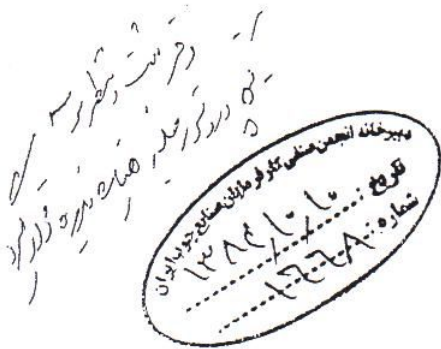 دفتر ثبت
در دستور جلسه هیات مدیره قرار گیرد
دبیرخانه انجمن صنفی کارفرمایان صنایع چوب ایران
تاریخ: ۱۳۸۴/۱۰/۱۰
شماره: ۱۶۶۸